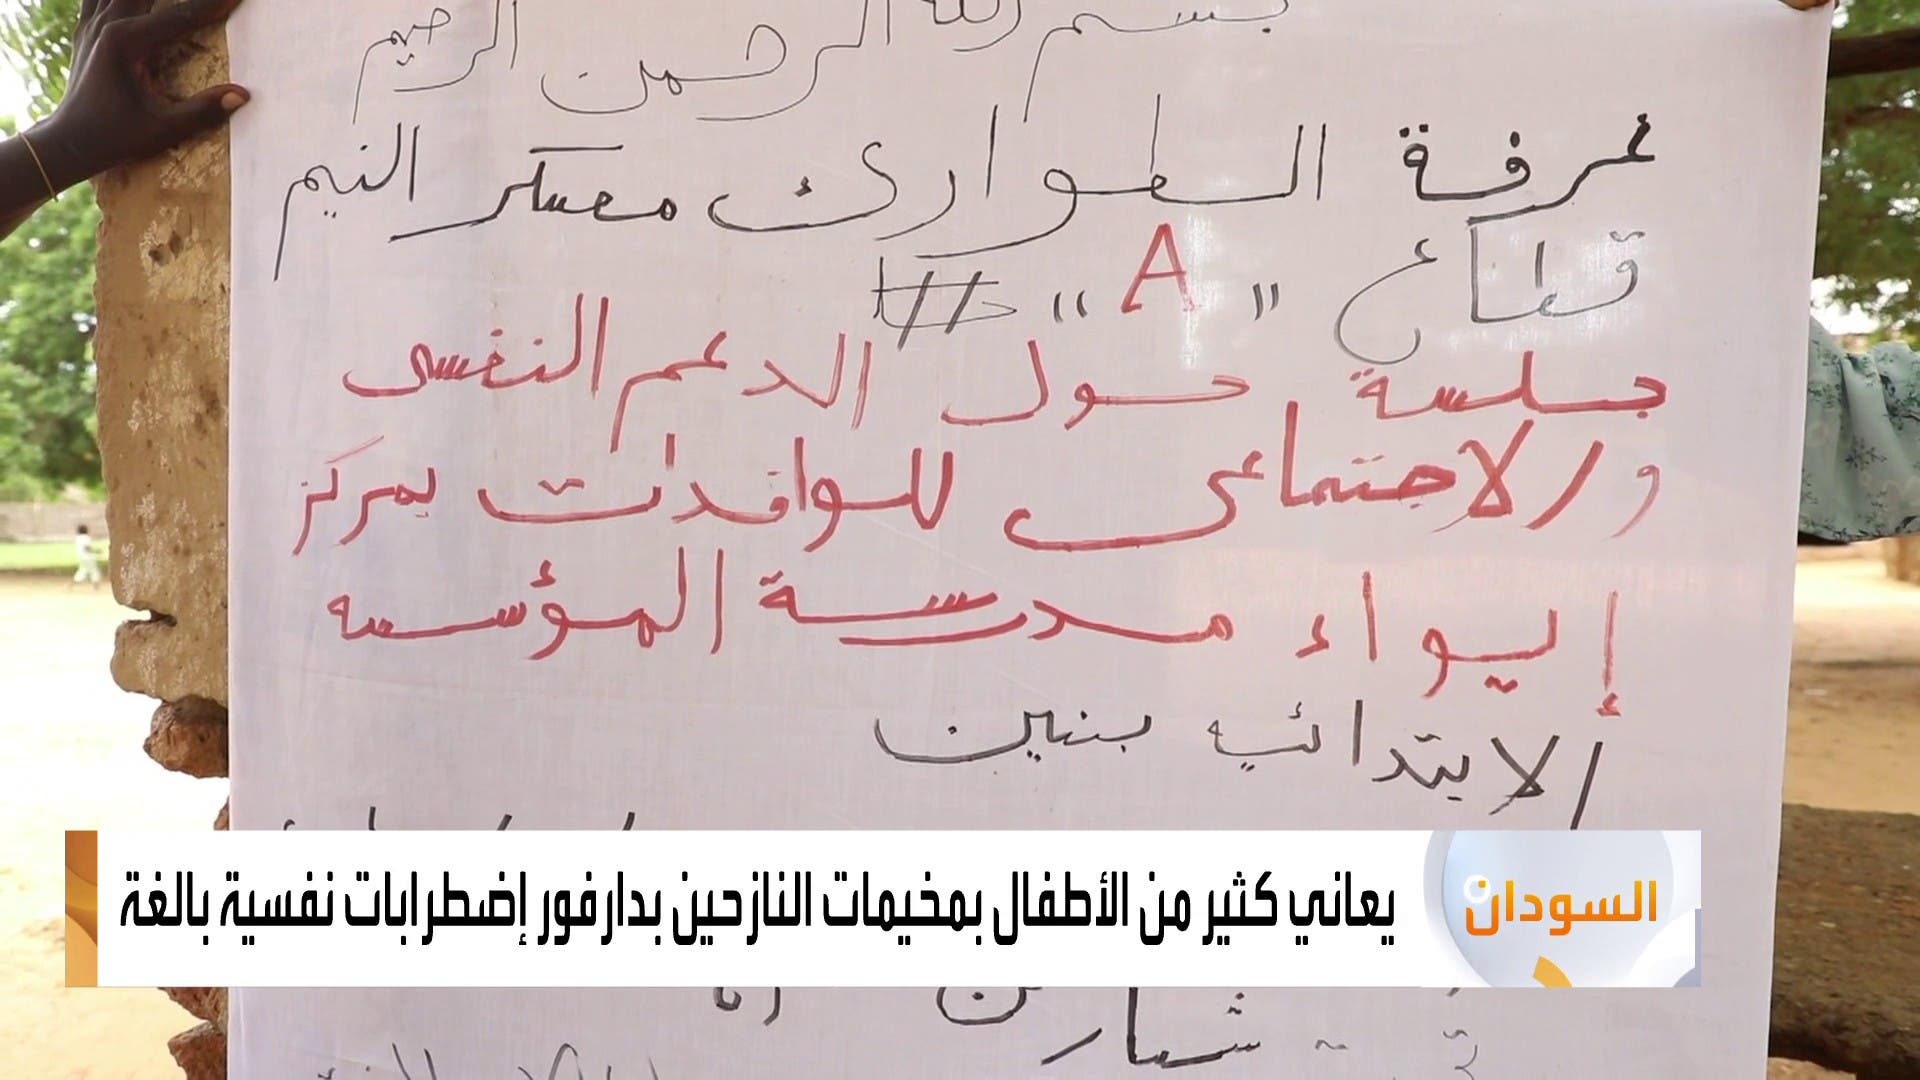 بسم الله الرحمن الرحيم
غرفة الطوارئ معسكر النيم
قطاع "A"
جلسة حول الدعم النفسى
والاجتماعى للوافدات بمركز
إيواء مدرسة المؤسسه
الابتدائيه بنين
السودان
يعاني كثير من الأطفال بمخيمات النازحين بدارفور إضطرابات نفسية بالغة